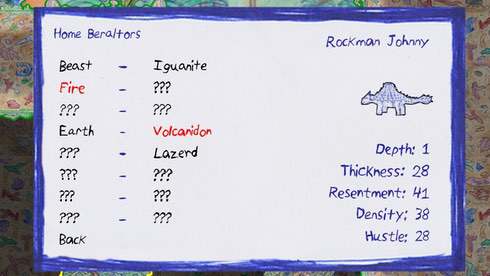 Home Beraltors
Rockman Johnny
Beast - Iguanite
Fire - ???
??? - ???
Earth - Volcanidon
??? - Lazerd
??? - ???
??? - ???
??? - ???
Back
Depth: 1
Thickness: 28
Resentment: 41
Density: 38
Hustle: 28